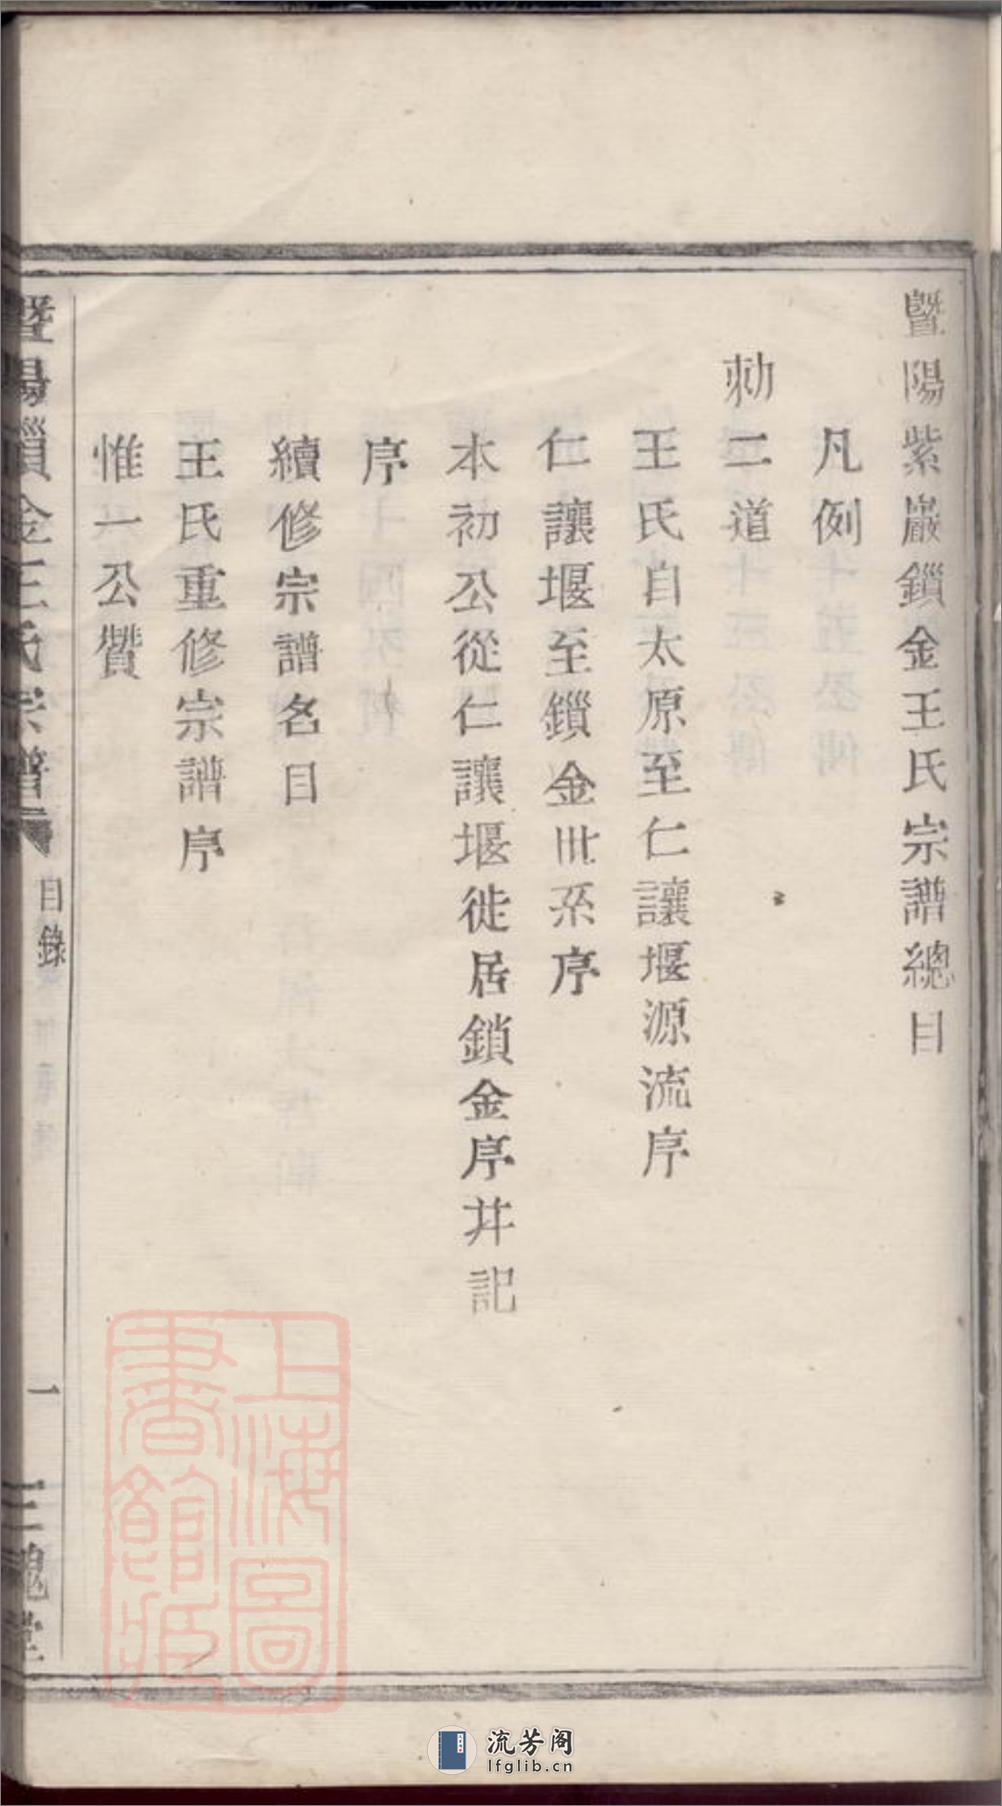 暨陽紫巖鎖金王氏宗譜總目
凡例
勅二道
王氏自太原至仁讓堰源流序
仁讓堰至鎖金丗系序
本初公從仁讓堰徙居鎖金序幷記
序
續修宗譜名目
王氏重修宗譜序
惟一公贊
暨陽鎖金王氏宗譜
目錄
一
三槐堂
上海圖
書館藏
流芳阁
lfglib.cn